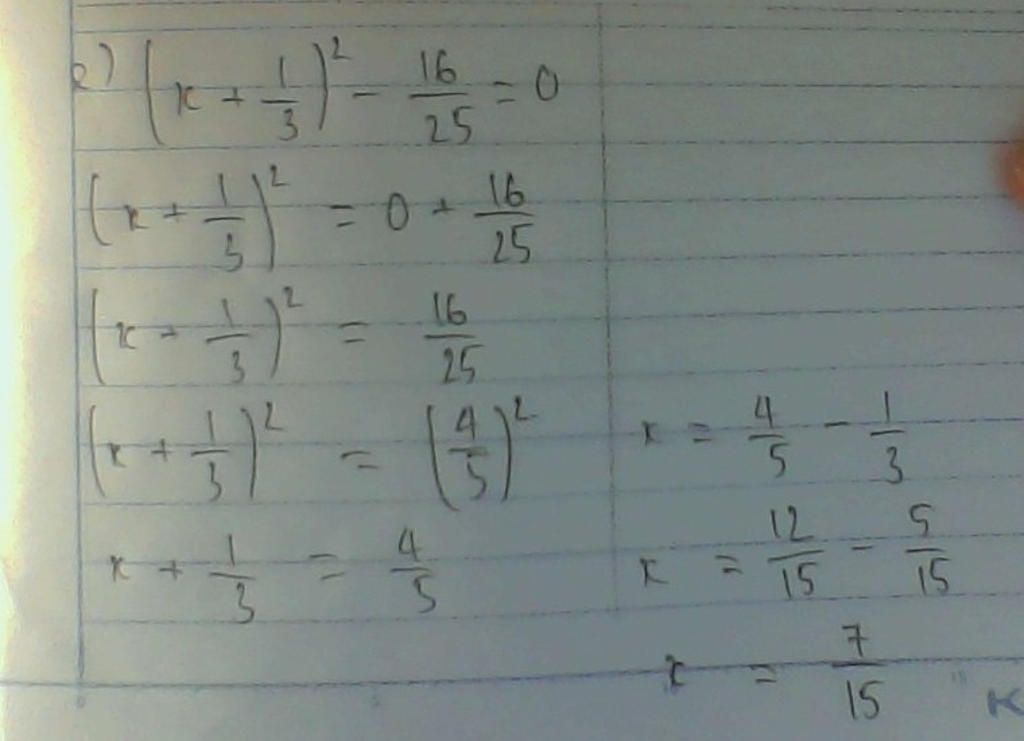 e) (x + 1/3)² - 16/25 = 0
(x + 1/3)² = 0 + 16/25
(x + 1/3)² = 16/25
(x + 1/3)² = (4/5)²
x + 1/3 = 4/5
x = 4/5 - 1/3
x = 12/15 - 5/15
x = 7/15
K